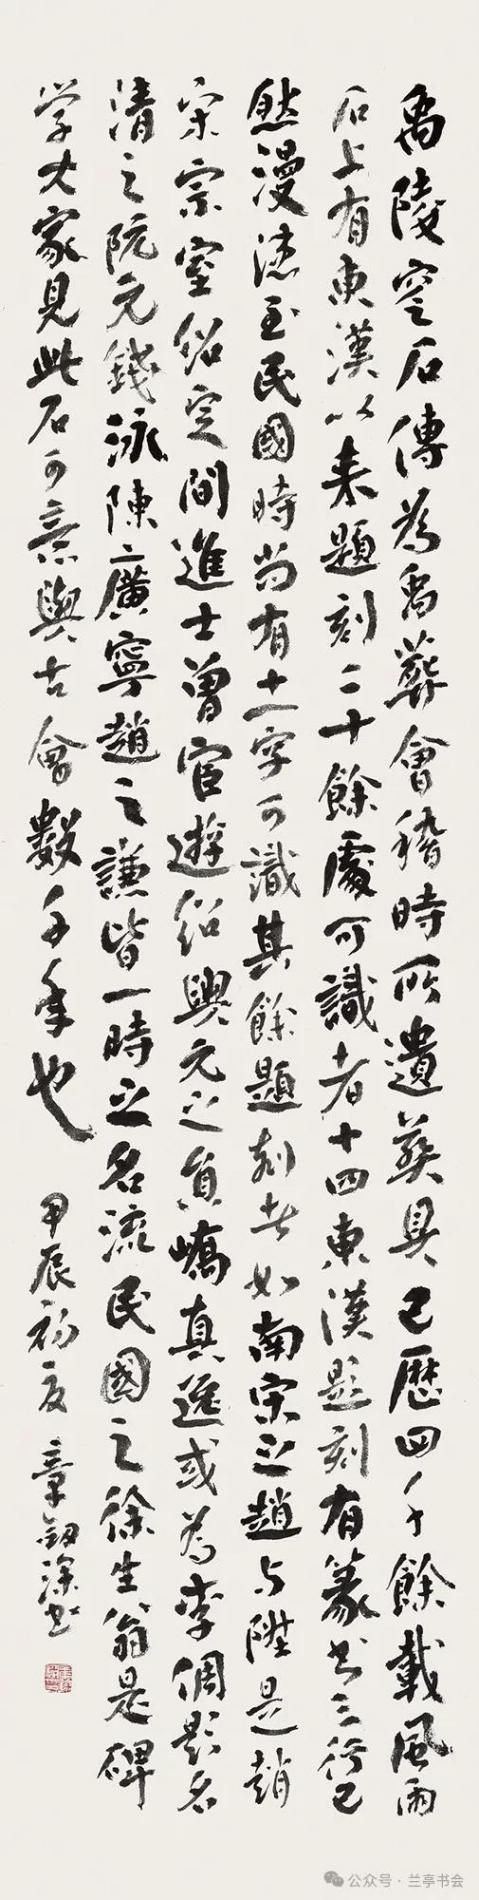 禹陵窆石傳為禹葬會稽時所遺葬具已歷四千餘載風雨
石上有東漢以来題刻二十餘處可識者十四東漢題刻有篆书三行已
然漫漶至民國時尚有十一字可識其餘題刻者如南宋之趙与陞是趙
宋宗室紹定間進士曾宦遊紹興元之員嶠真逸或為李倜題名
清之阮元錢泳陳廣寧趙之謙皆一時之名流民國之徐生翁是碑
学大家見此石可意與古會數千年也
甲辰初夏 章劍深书
公众号·兰亭书会